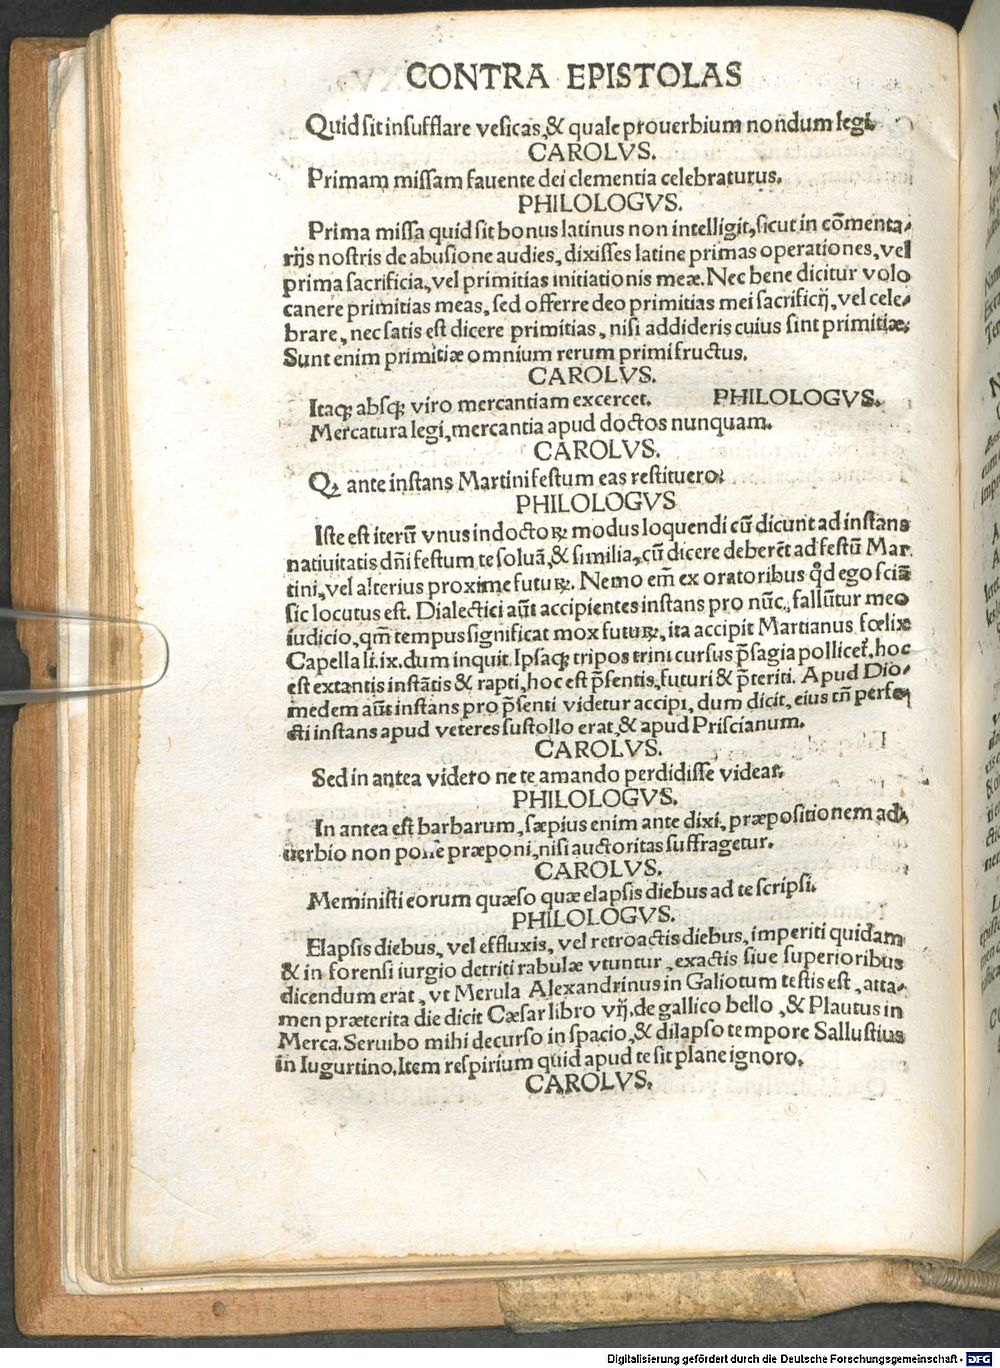 CONTRA EPISTOLAS
Quid sit insufflare vesicas, & quale prouerbium nondum legi.
CAROLVS.
Primam missam fauente dei clementia celebraturus.
PHILOLOGVS.
Prima missa quid sit bonus latinus non intelligit, sicut in cōmenta-
rijs nostris de abusione audies, dixisses latine primas operationes, vel
prima sacrificia, vel primitias initiationis meæ. Nec bene dicitur volo
canere primitias meas, sed offerre deo primitias mei sacrificij, vel cele-
brare, nec satis est dicere primitias, nisi addideris cuius sint primitiæ,
Sunt enim primitiæ omnium rerum primi fructus.
CAROLVS.
Itaqꝫ absqꝫ viro mercantiam excercet. PHILOLOGVS.
Mercatura legi, mercantia apud doctos nunquam.
CAROLVS.
Qꝫ ante instans Martini festum eas restituero:
PHILOLOGVS
Iste est iterū vnus indoctoꝝ modus loquendi cū dicunt ad instans
natiuitatis dn̄i festum te soluā, & similia, cū dicere deberēt ad festū Mar.
tini, vel alterius proxime futuꝝ. Nemo em̄ ex oratoribus qd̄ ego sciā
sic locutus est. Dialectici aūt accipientes instans pro nūc, fallūtur meo
iudicio, qm̄ tempus significat mox futuꝝ, ita accipit Martianus fœlix
Capella li. ix. dum inquit. Ipsaqꝫ tripos trini cursus p̄sagia pollicet̄, hoc
est extantis instātis & rapti, hoc est p̄sentis, futuri & p̄teriti. Apud Dio-
medem aūt instans pro p̄senti videtur accipi, dum dicit, eius tn̄ perfe
cti instans apud veteres sustollo erat, & apud Priscianum.
CAROLVS.
Sed in antea videro ne te amando perdidisse videar.
PHILOLOGVS.
In antea est barbarum, sæpius enim ante dixi, præpositionem ad-
uerbio non posse præponi, nisi auctoritas suffragetur.
CAROLVS.
Meministi eorum quæso quæ elapsis diebus ad te scripsi.
PHILOLOGVS.
Elapsis diebus, vel effluxis, vel retroactis diebus, imperiti quidam
& in forensi iurgio detriti rabulæ vtuntur, exactis siue superioribus
dicendum erat, vt Merula Alexandrinus in Galiotum testis est, atta-
men præterita die dicit Cæsar libro vij. de gallico bello, & Plautus in
Merca. Seruibo mihi decurso in spacio, & dilapso tempore Sallustius
in Iugurtino. Item respirium quid apud te sit plane ignoro.
CAROLVS.
Digitalisierung gefördert durch die Deutsche Forschungsgemeinschaft - DFG